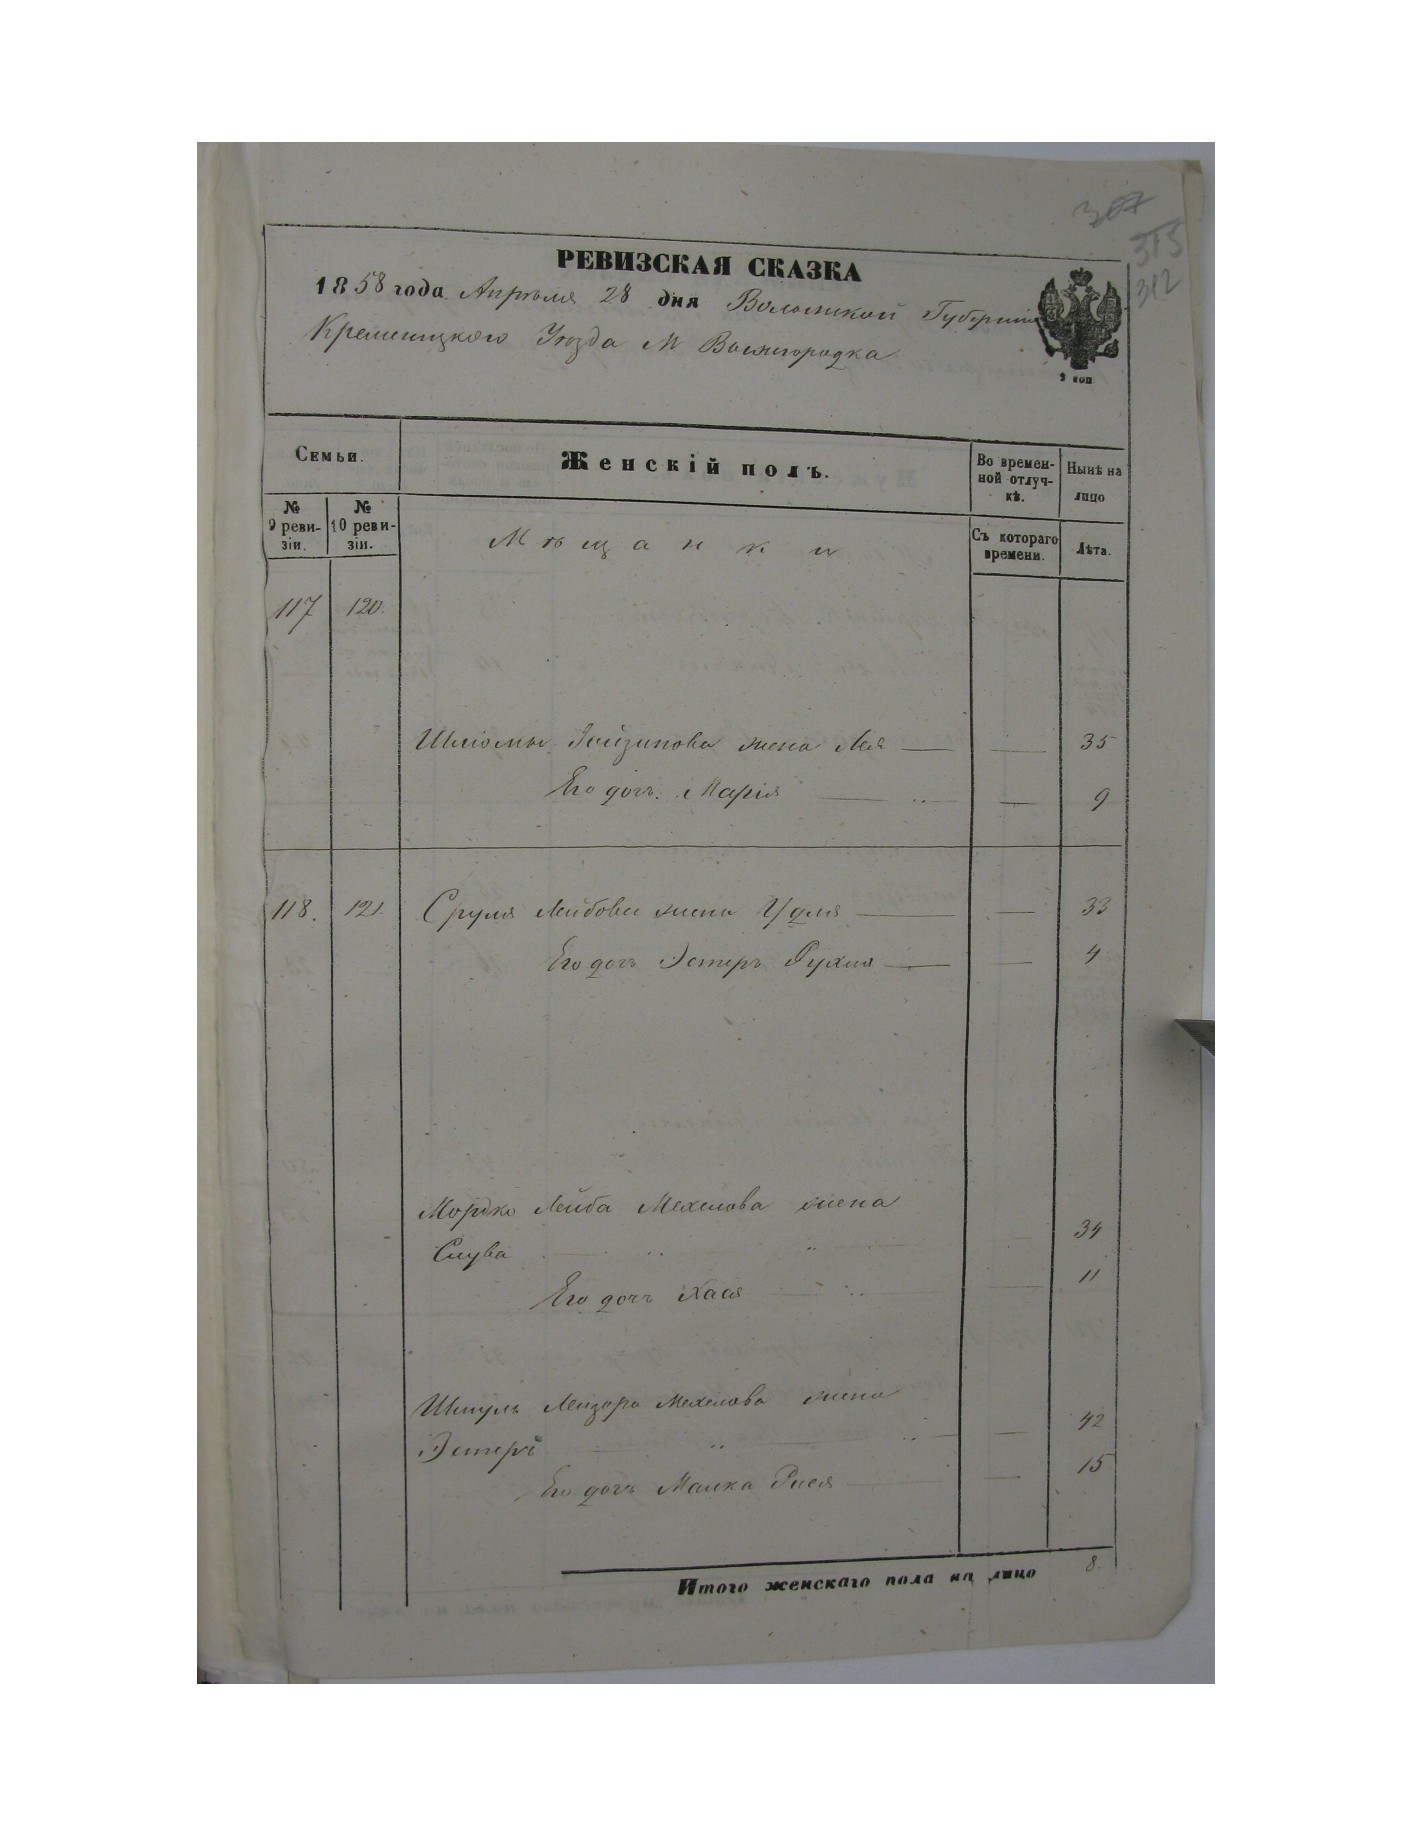 307
315
312
РЕВИЗСКАЯ СКАЗКА
1858 года Апрѣля 28 дня Волынской Губерніи
Кременецкого Уѣзда М
2 коп.
Семьи.
Женскій полъ.
Во времен-
ной отлуч-
кѣ.
Нынѣ на
лицо
№
9 реви-
зіи.
№
10 реви-
зіи.
Съ котораго
времени.
Лѣта.
Мѣщанки
117 120.
Шліомы жена Лея — — 35
Его дочь Марія — — 9
118. 121. Сруля Лейбова жена Удля — — 33
Его дочь Эстеръ Рухля — — 4
Мордко Лейба Мехелова жена
Слува — 34
Его дочь Хася — — 11
Шмуль Лейзора Мехелова жена
Эстеръ — — 42
Его дочь Малка Рися — — 15
Итого женскаго пола на лицо 8.